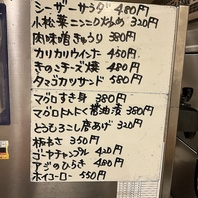 シーザーサラダ 480円
小松菜ニンニク炒め 320円
肉味噌きゅうり 380円
カリカリウィンナー 450円
きのこチーズ焼 480円
タマゴカツサンド 580円
マグロすき身 380円
マグロにんにく醤油漬 380円
とうもろこし唐あげ 320円
板わさ 350円
ゴーヤチャンプル 420円
アジのひらき 480円
ホイコーロー 550円